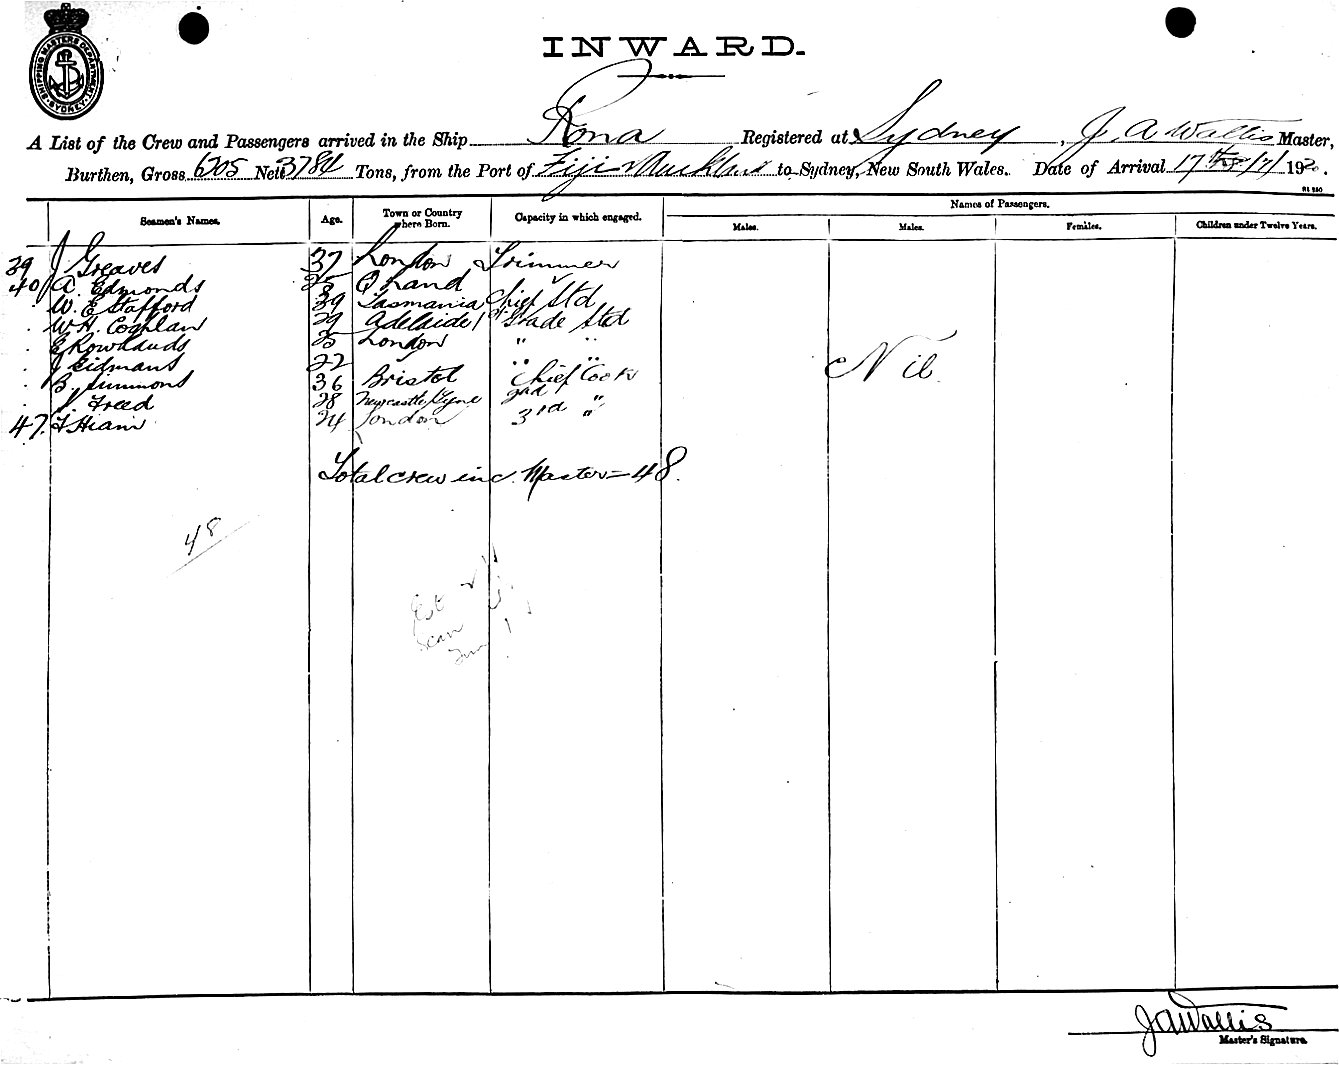 SHIPPING MASTERS DEPARTMENT SYDNEY
INWARD.
A List of the Crew and Passengers arrived in the Ship Rona Registered at Sydney, J. A Wallis Master,
Burthen, Gross 6205 Nett 3784 Tons, from the Port of Fiji & Auckland to Sydney, New South Wales. Date of Arrival 17th /7/ 1920.
Seamen's Names. Age. Town or Country where Born. Capacity in which engaged. Names of Passengers.
Males. Males. Females. Children under Twelve Years.
39 J Greaves 37 London Trimmer
40 A. Edmonds 25 Q Land "
W. E Stafford 39 Tasmania Chief Std
W H. Coghlan 29 Adelaide 1st Grade Std
E Rowlands 25 London " "
J Eidmans 22 " " "
B. Simmons 36 Bristol Chief Cook
Freed 28 Newcastle/Tyne 2nd "
47. F Hiam 24 London 3rd "
Nil
Total crew inc. Master = 48.
48
J A Wallis
Master's Signature.